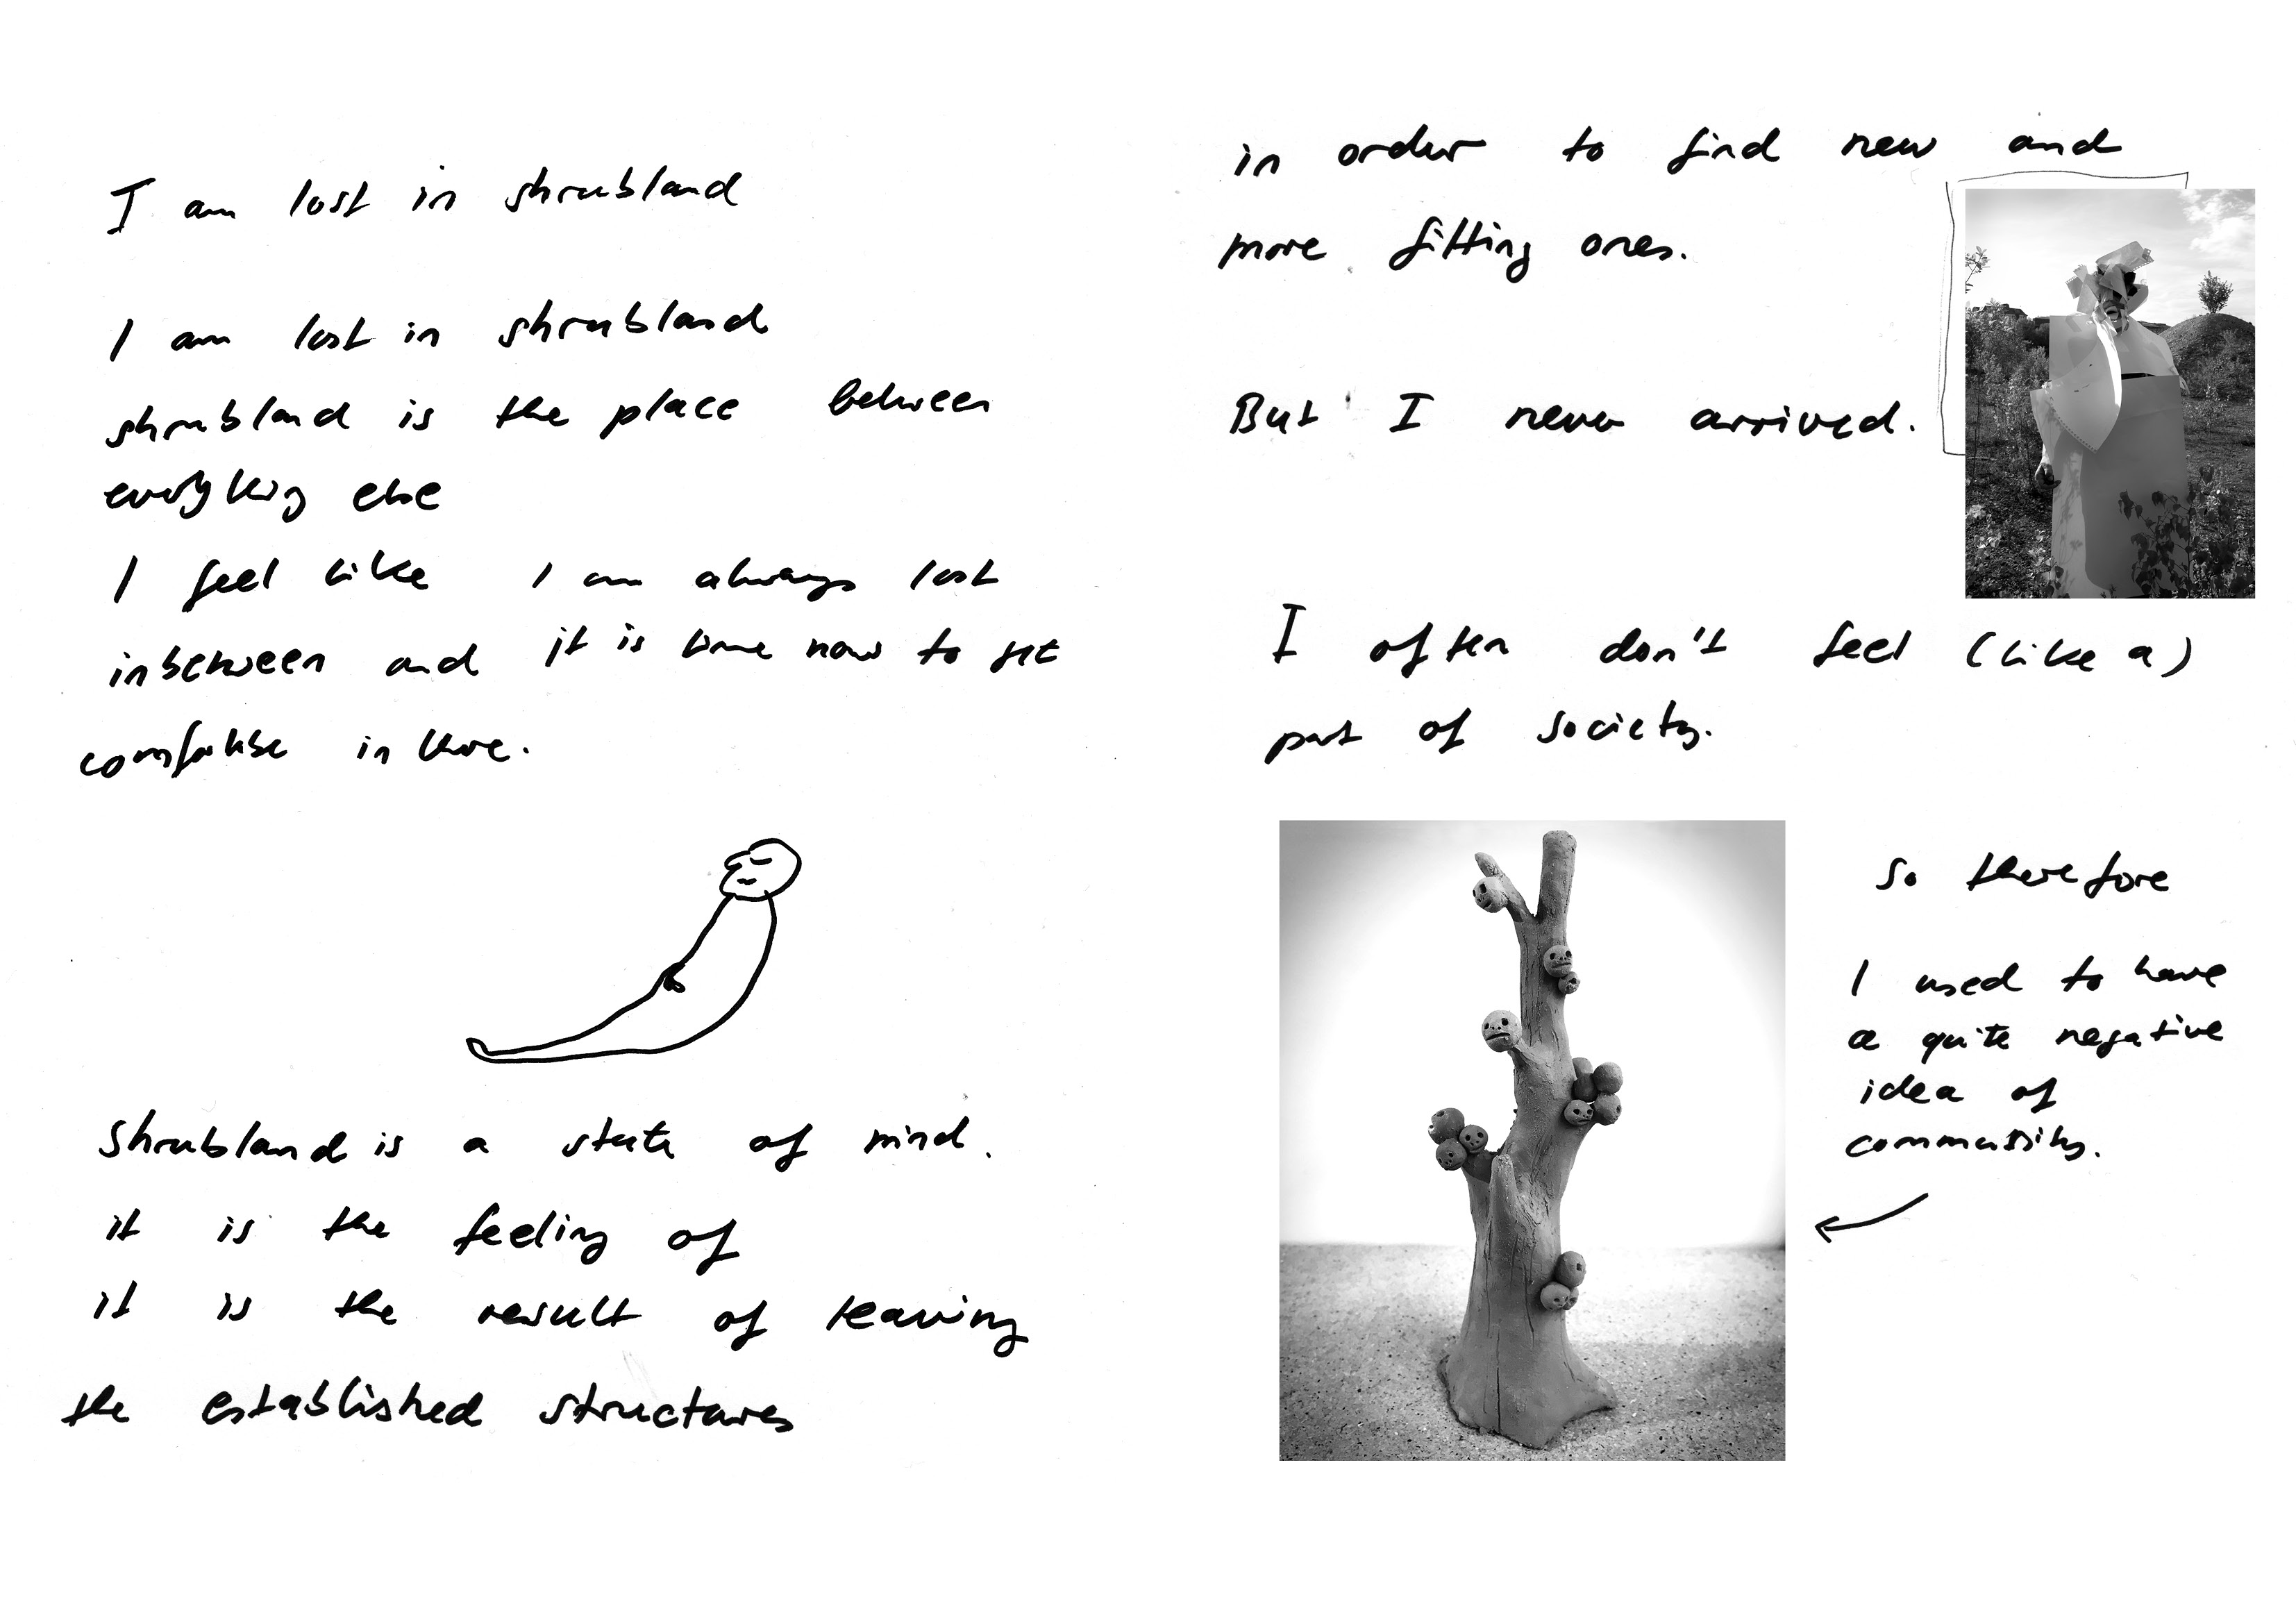 I am lost in shrubland
I am lost in shrubland
shrubland is the place between
everything else
I feel like I am always lost
inbetween and it is time now to get
comfortable in there.
Shrubland is a state of mind.
it is the feeling of
it is the result of leaving
the established structures
in order to find new and
more fitting ones.
But I never arrived.
I often don't feel (like a)
part of society.
so therefore
I used to have
a quite negative
idea of
community.